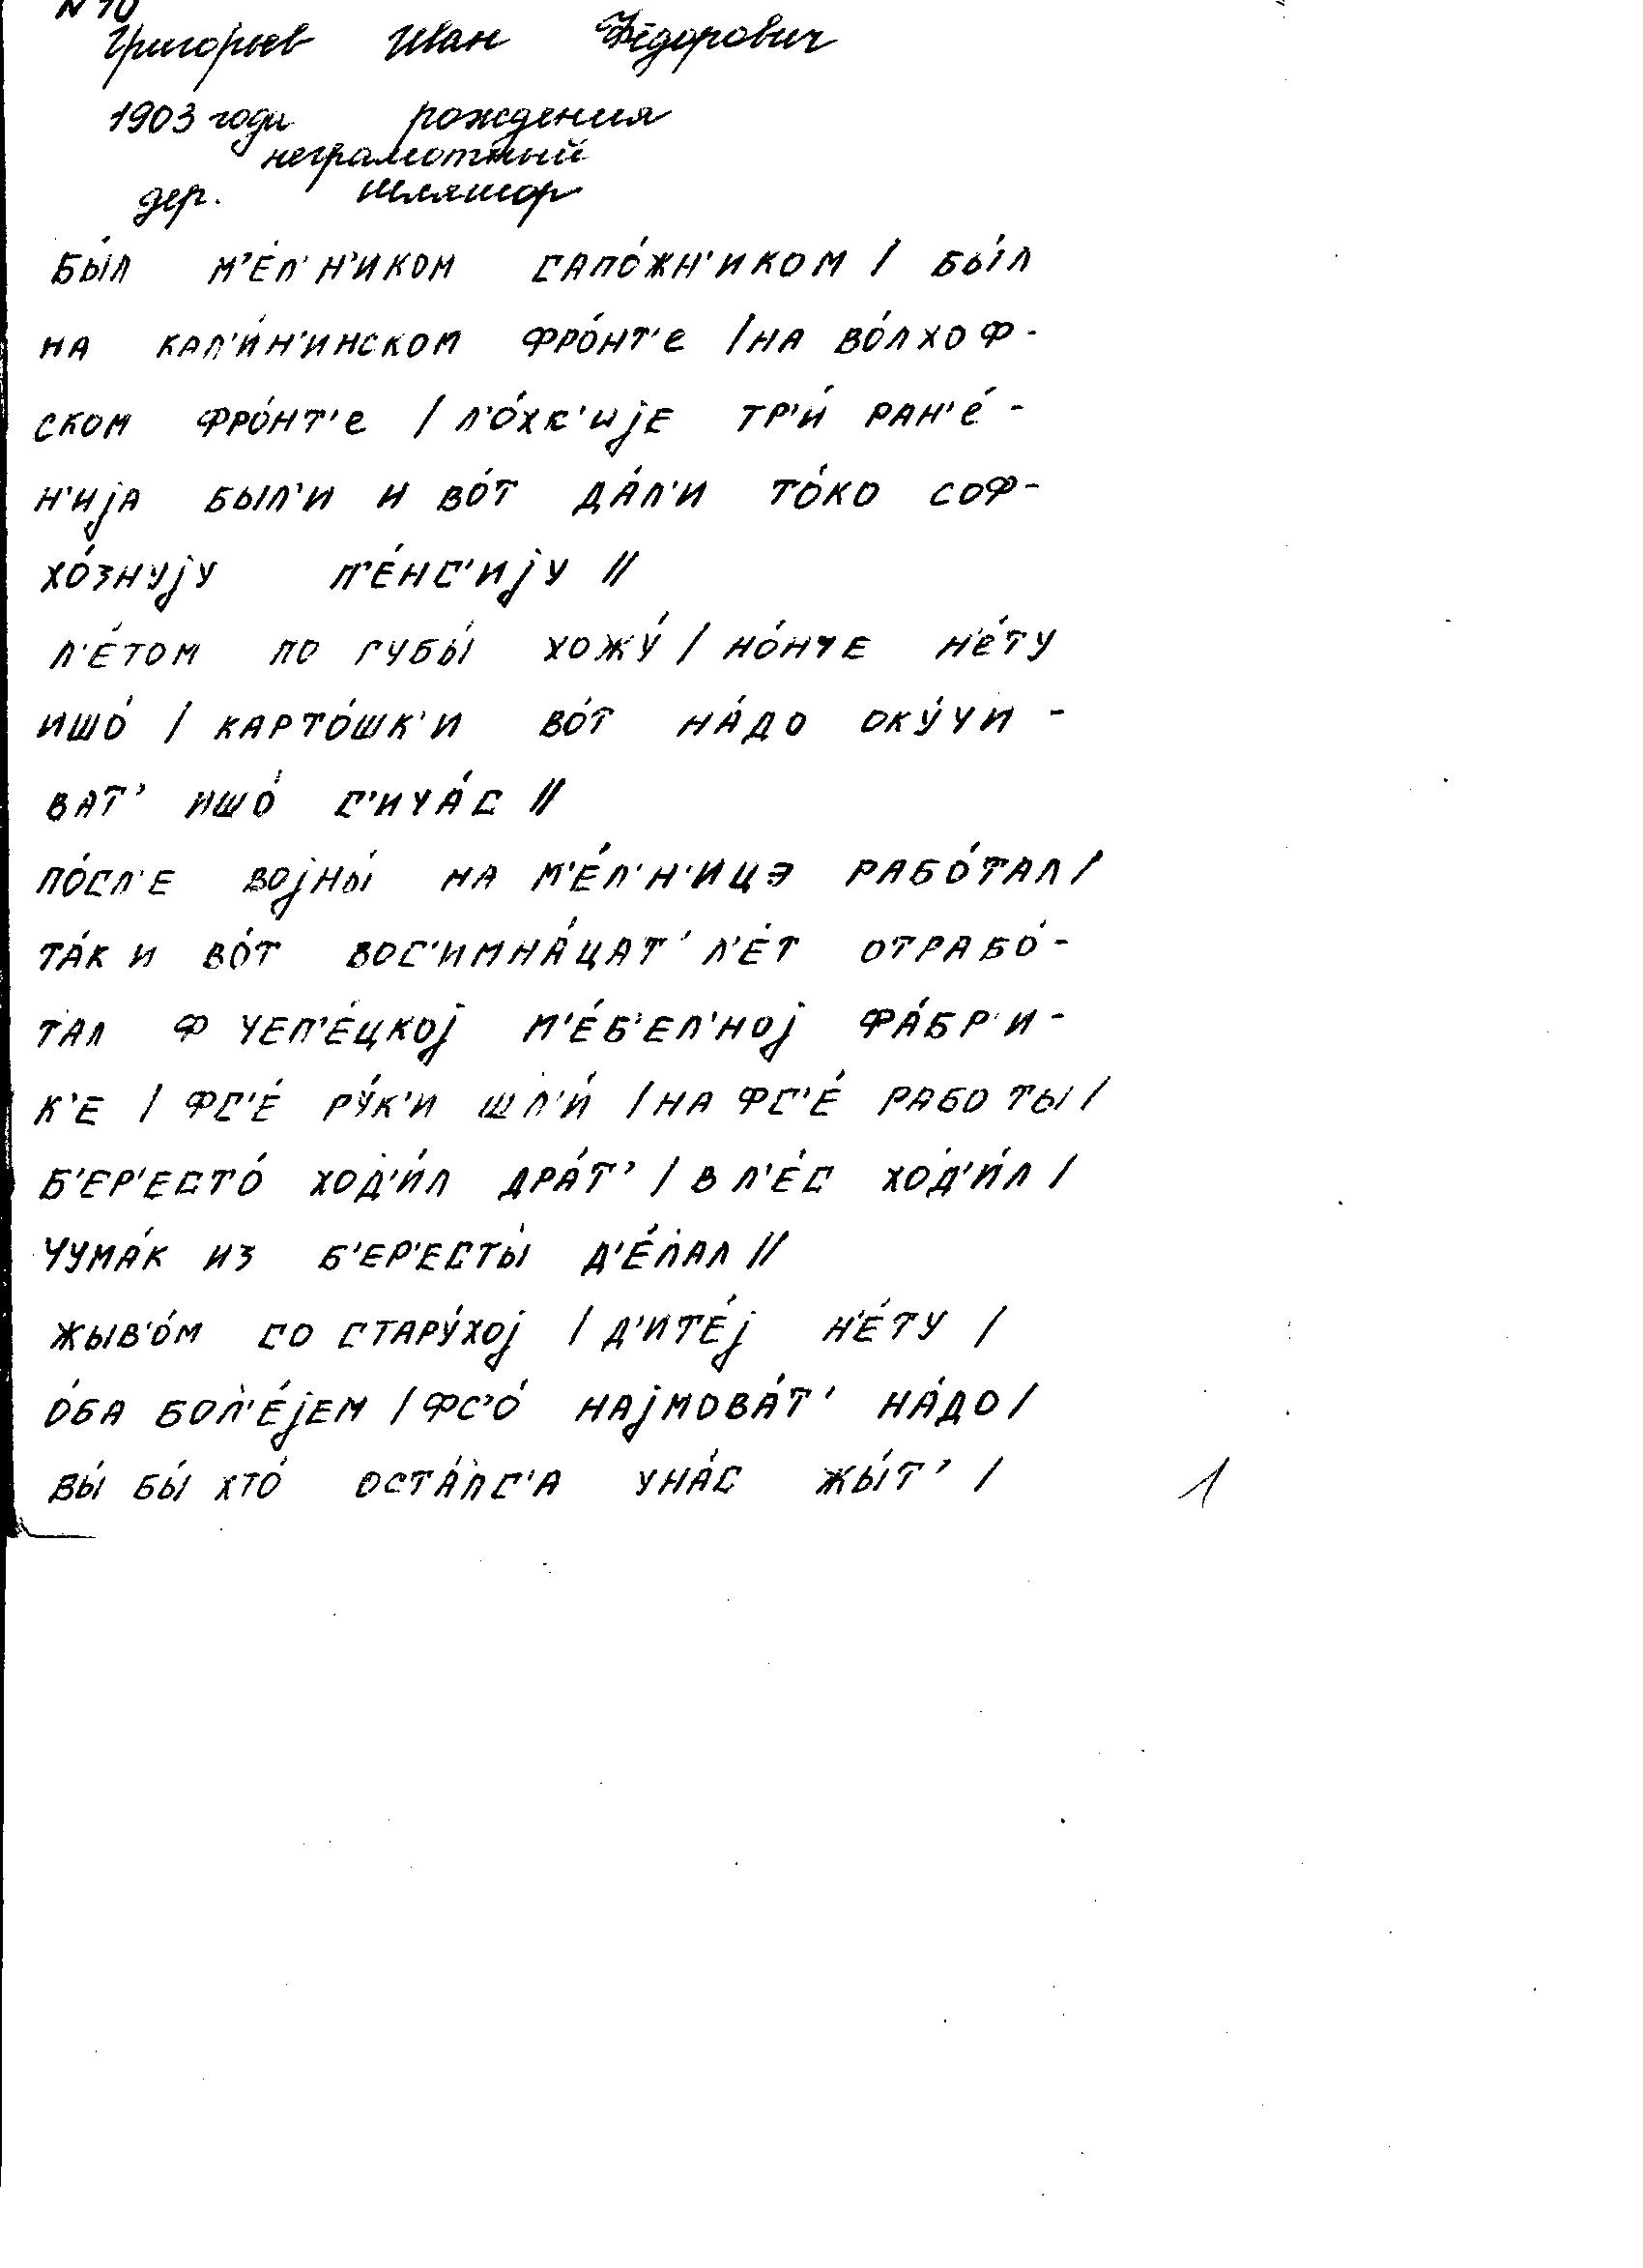 N 10
Григорьев Иван Фёдорович
1903 года рождения
неграмотный
дер. Шляшор
БЫ́Л М'Е́Л'Н'ИКОМ САПО́ЖН'ИКОМ / БЫ́Л
НА КАЛ'И́Н'ИНСКОМ ФРО́НТ'Е / НА ВО́ЛХОФ-
СКОМ ФРО́НТ'Е / Л'О́ХК'ИjЕ ТР'И́ РАН'Е́-
Н'ИjА БЫЛ'И И ВО́Т ДА́Л'И ТО́КО СОФ-
ХО́ЗНУjУ П'Е́НС'ИjУ //
Л'Е́ТОМ ПО ГУБЫ́ ХОЖУ́ / НО́НЧЕ Н'Е́ТУ
ИШО́ / КАРТО́ШК'И ВО́Т НА́ДО ОКУ́ЧИ-
ВАТ' ИШО́ С'ИЧА́С //
ПО́СЛ'Е ВОjНЫ́ НА М'Е́Л'Н'ИЦЭ РАБО́ТАЛ /
ТА́К И ВО́Т ВОС'ИМНА́ЦАТ' Л'Е́Т ОТРАБО́-
ТАЛ Ф ЧЕП'Е́ЦКОj М'Е́Б'ЕЛ'НОj ФА́БР'И-
К'Е / ФС'Е́ РУ́К'И ШЛ'И́ / НА ФС'Е́ РАБОТЫ /
Б'ЕР'ЕСТО́ ХОД'И́Л ДРА́Т' / В Л'Е́С ХОД'И́Л /
ЧУМА́К ИЗ Б'ЕР'ЕСТЫ́ Д'Е́ЛАЛ //
ЖЫВ'О́М СО СТАРУ́ХОj / Д'ИТ'Е́j Н'Е́ТУ /
О́БА БОЛ'Е́jЕМ / ФС'О́ НАjМОВА́Т' НА́ДО /
ВЫ́ БЫ́ ХТО́ ОСТА́ЛС'А УНА́С ЖЫ́Т' /
1